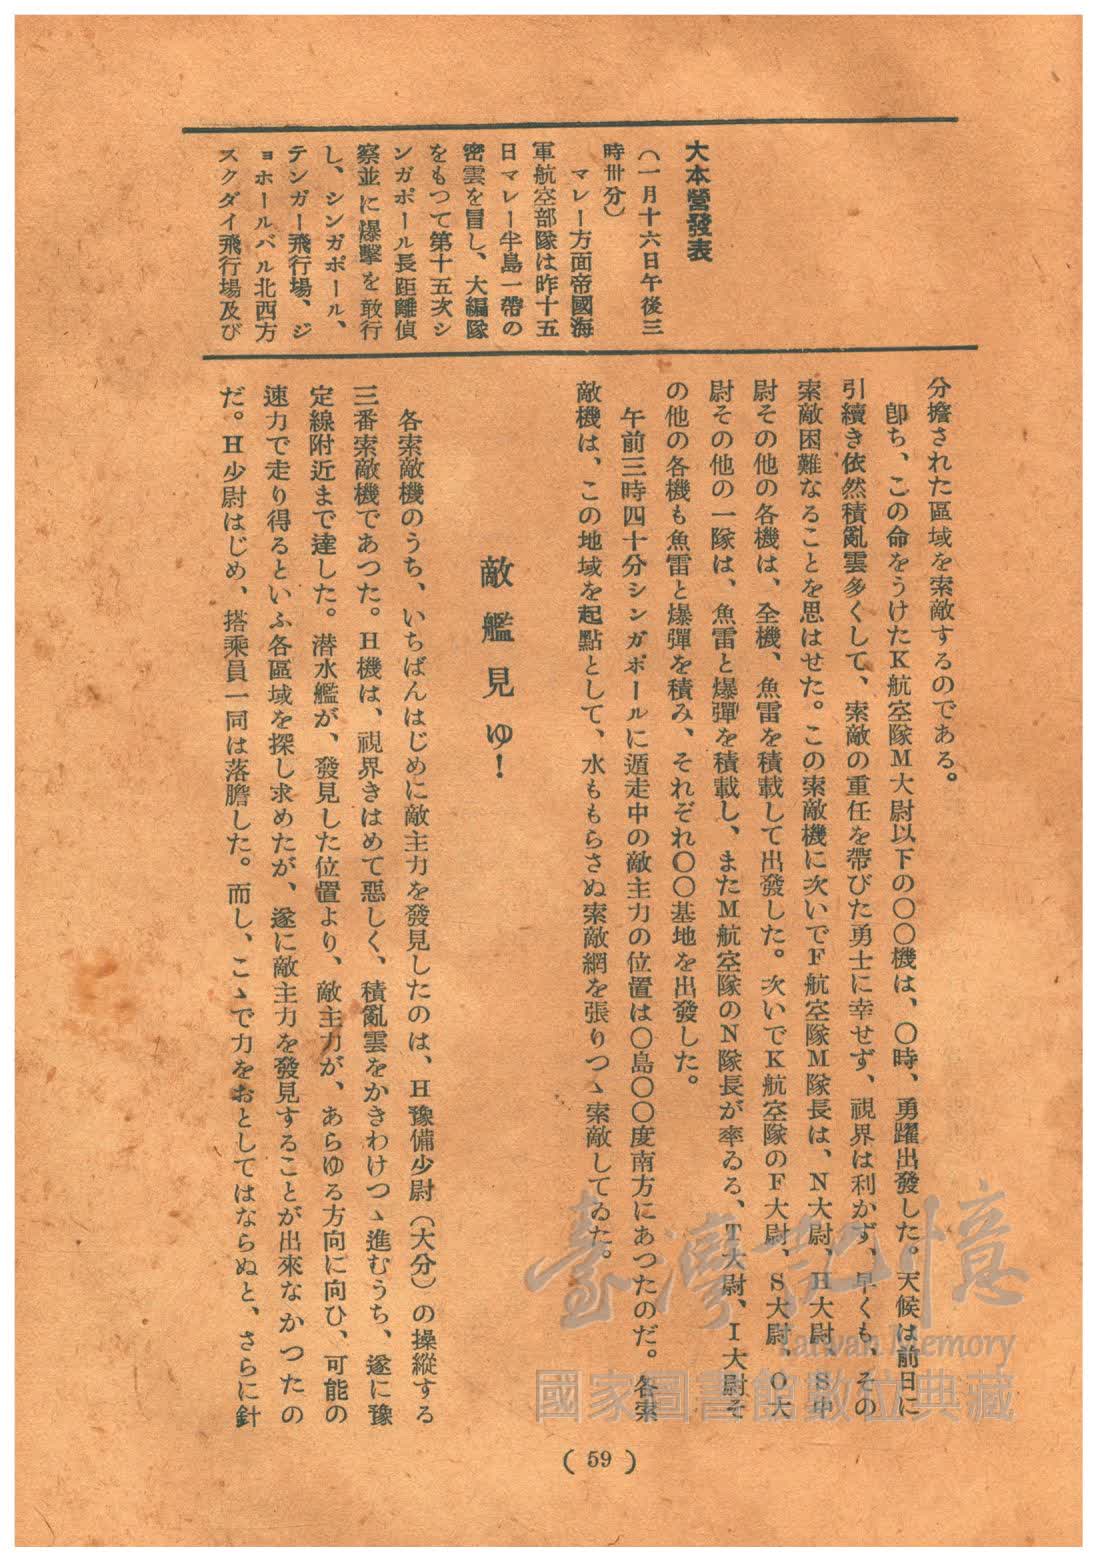 大本營發表
(一月十六日午後三
時卅分)
マレー方面帝國海
軍航空部隊は昨十五
日マレー半島一帶の
密雲を冒し、大編隊
をもつて第十五次シ
ンガポール長距離偵
察並に爆擊を敢行
し、シンガポール、
テンガー飛行場、ジ
ョホールバル北西方
スクダイ飛行場及び
分擔された區域を索敵するのである。
卽ち、この命をうけたK航空隊M大尉以下の〇〇機は、〇時、勇躍出發した。天候は前日に
引續き依然積亂雲多くして、索敵の重任を帶びた勇士に幸せず、視界は利かず、早くも、その
索敵困難なることを思はせた。この索敵機に次いでF航空隊M隊長は、N大尉、H大尉、S中
尉その他の各機は、全機、魚雷を積載して出發した。次いでK航空隊のF大尉、S大尉、O大
尉その他の一隊は、魚雷と爆彈を積載し、またM航空隊のN隊長が率ゐる、T大尉、I大尉そ
の他の各機も魚雷と爆彈を積み、それぞれ〇〇基地を出發した。
午前三時四十分シンガポールに遁走中の敵主力の位置は〇島〇〇度南方にあつたのだ。各索
敵機は、この地域を起點として、水ももらさぬ索敵網を張りつゝ索敵してゐた。
敵艦見ゆ!
各索敵機のうち、いちばんはじめに敵主力を發見したのは、H豫備少尉(大分)の操縱する
三番索敵機であつた。H機は、視界きはめて惡しく、積亂雲をかきわけつゝ進むうち、遂に豫
定線附近まで達した。潜水艦が、發見した位置より、敵主力が、あらゆる方向に向ひ、可能の
速力で走り得るといふ各區域を探し求めたが、遂に敵主力を發見することが出來なかつたの
だ。H少尉はじめ、搭乘員一同は落膽した。而し、こゝで力をおとしてはならぬと、さらに針
( 59 )
臺灣記憶
Taiwan Memory
國家圖書館數位典藏